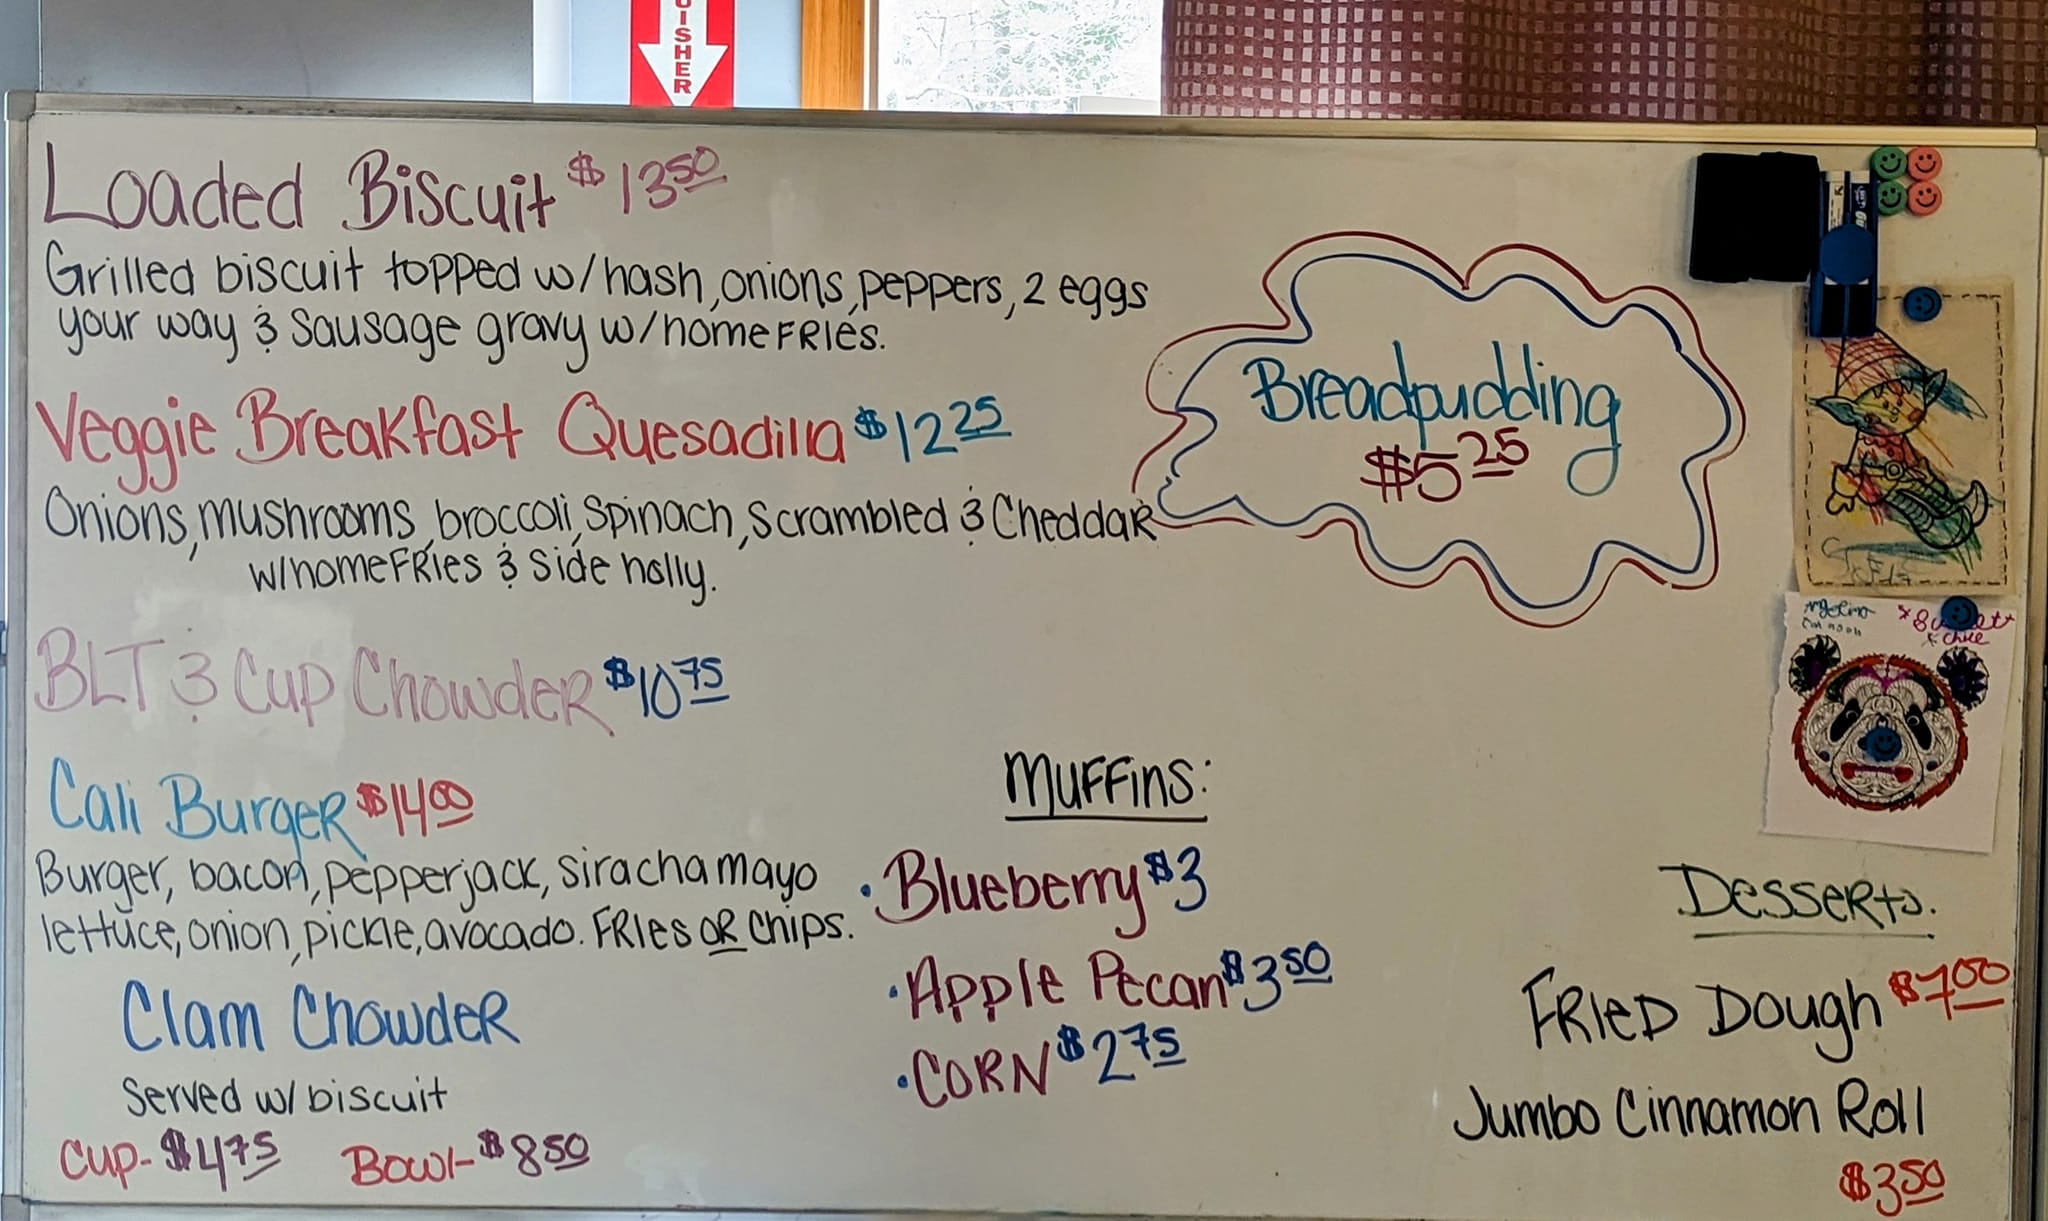 UISHER
Loaded Biscuit $13.50
Grilled biscuit topped w/hash, onions, peppers, 2 eggs
your way & Sausage gravy w/homeFRies.
Veggie Breakfast Quesadilla $12.25
Onions, mushrooms, broccoli, spinach, scrambled & CheddaR
w/homeFRies & side holly.
BLT & Cup ChowdeR $10.75
Cali BurgeR $14.00
Burger, bacon, pepperjack, siracha mayo
lettuce, onion, pickle, avocado. FRies OR chips.
Clam ChowdeR
Served w/ biscuit
Cup- $4.75 Bowl- $8.50
Breadpudding
$5.25
MUFFins:
• Blueberry $3
• Apple Pecan $3.50
• CORN $2.75
Desserts.
FRied Dough $7.00
Jumbo Cinnamon Roll
$3.50